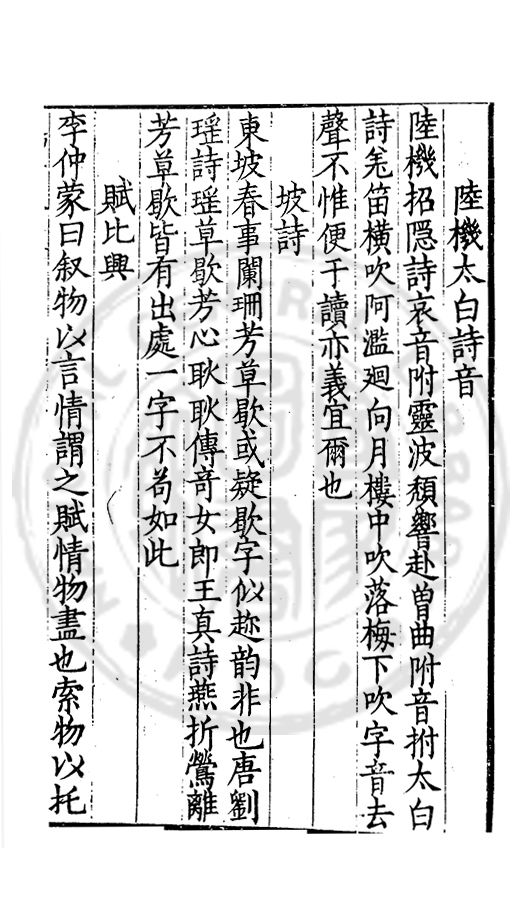 陸機太白詩音
陸機招隱詩哀音附靈波頹響赴曾曲附音拊太白
詩羌笛橫吹阿濫迴向月樓中吹落梅下吹字音去
聲不惟便于讀亦義宜爾也
坡詩
東坡春事闌珊芳草歇或疑歇字似趂韵非也唐劉
瑶詩瑶草歇芳心耿耿傳竒女郎王真詩燕折鶯離
芳草歇皆有出處一字不苟如此
賦比興
李仲蒙曰叙物以言情謂之賦情物盡也索物以托